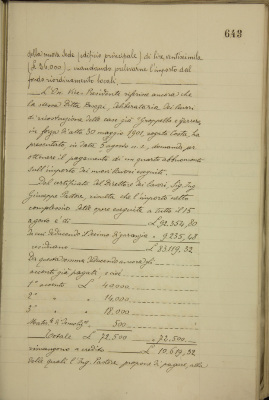 643
della nuova sede (edificio principale) di lire ventiseimila
(£ 26,000), mandando prelevarne l'importo dal
fondo riordinamento locali.
L'On. Vice-Presidente riferisce ancora che
la stessa Ditta deliberataria dei lavori
di ricostruzione delle case già e
in forza d'atto 30 maggio 1901, rogato Costa, ha
presentata, in data 5 agosto u. s., domanda per
ottenere il pagamento di un quarto abbuonconto
sull'importo dei nuovi lavori eseguiti.
Dal certificato del Direttore dei lavori, Sig. Ing.
Giuseppe Pastore, risulta che l'importo netto
complessivo delle opere eseguite a tutto il 15
agosto è di £ 92.354,80
da cui deducendo il decimo di garanzia " 9.235,48
residuano £ 83119,32
Da questa somma deducendo ancora gli
acconti già pagati, e cioè
1° acconto £ 40000
2° " " 14,000
3° " " 18.000
500
Totale £ 72,500 " 72,500
rimangono a credito £ 10,619,32
delle quali l'Ing. Pastore propone di pagare, alla